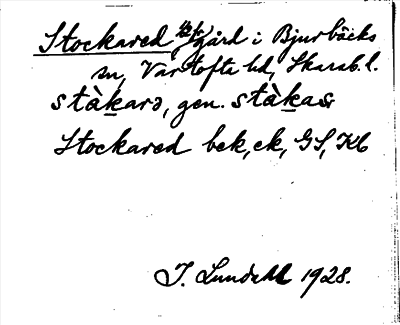 Stockared gård i Bjurbäcks
sn, Vartofta hd, Skarab. l.
stàkarə, gen. stàkas
Stockared bek, ek, GS, Kb
I. Lundahl 1928.